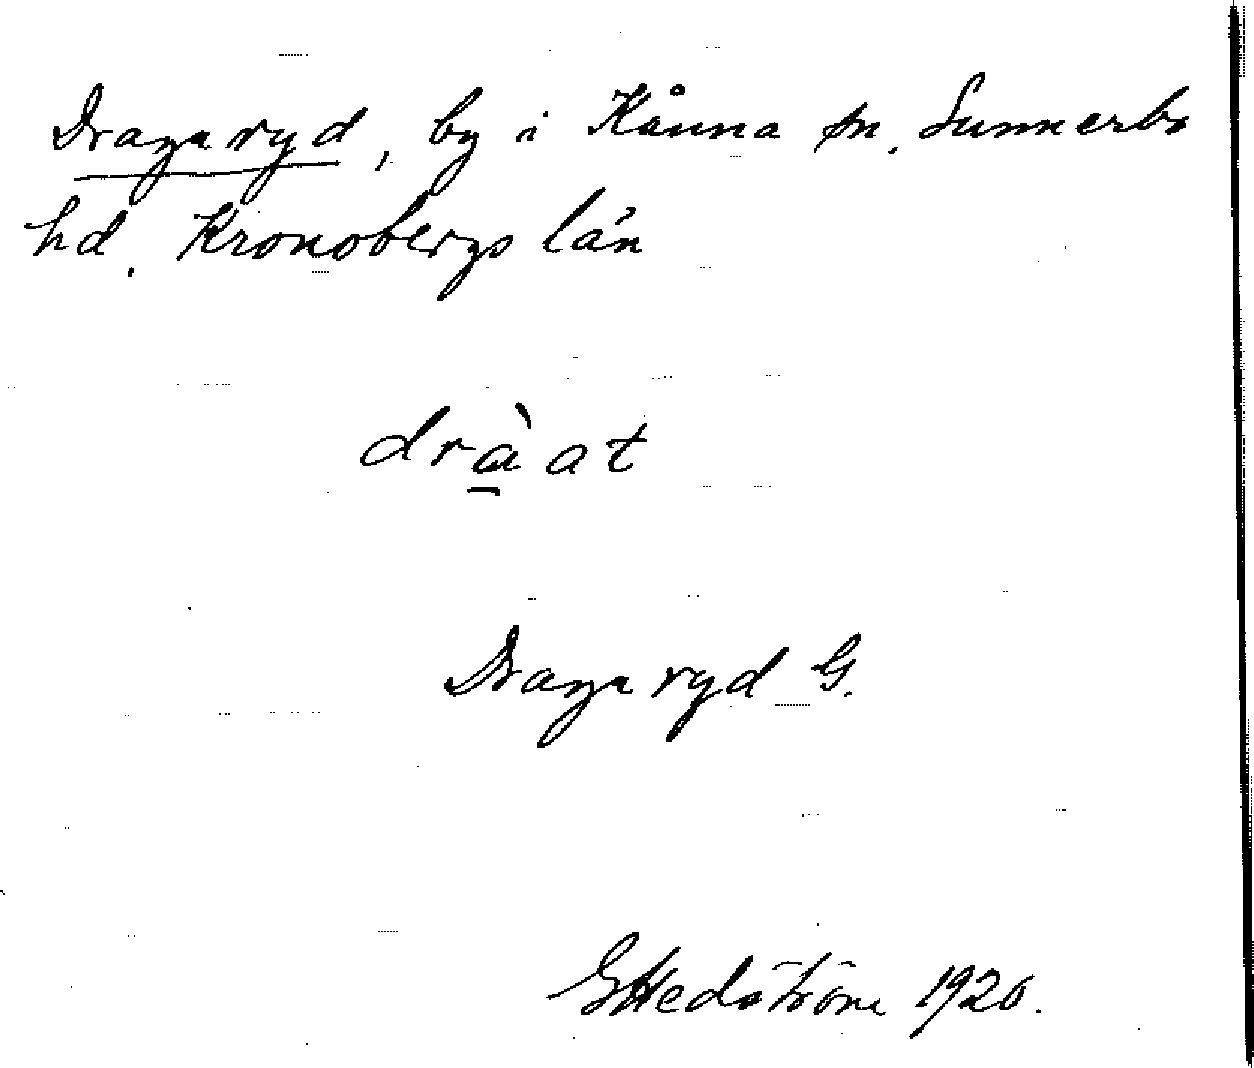 Dragaryd, by i Kånna sn. Sunnerbo
hd. Kronobergs län
dràat
Dragaryd G.
G Hedström 1920.